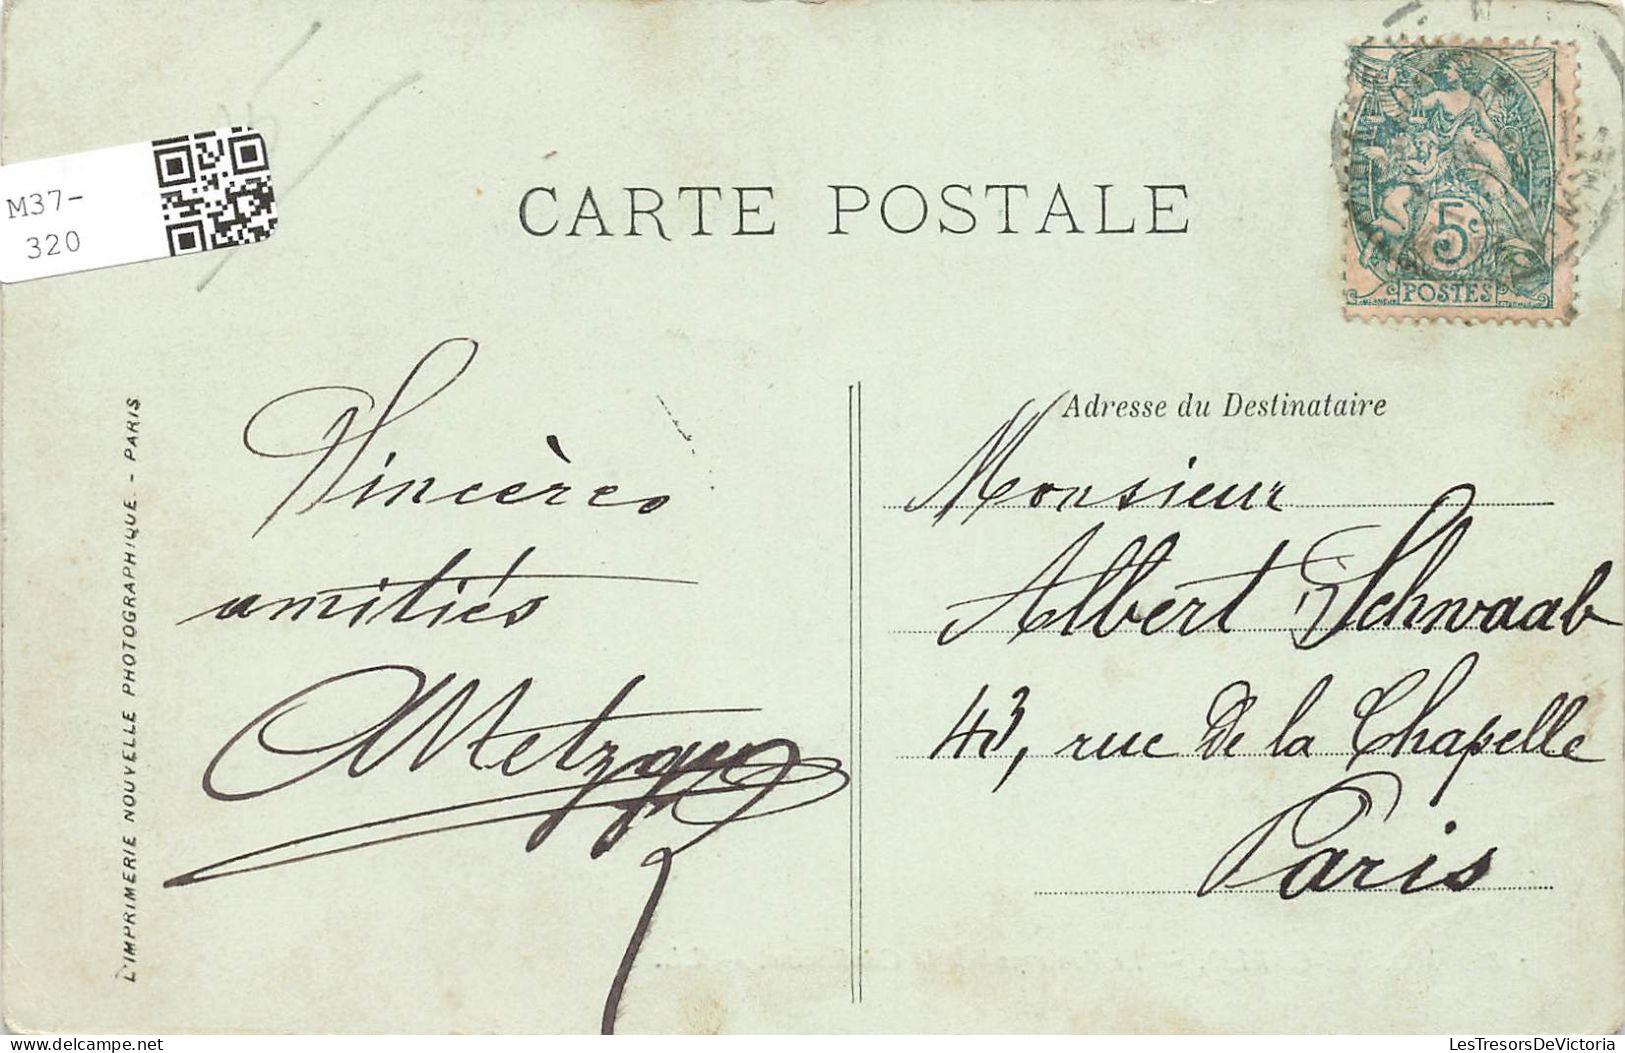 M37-
320
CARTE POSTALE
5c
POSTES
L'IMPRIMERIE NOUVELLE PHOTOGRAPHIQUE - PARIS
Sincères
amitiés
AMetzger
Adresse du Destinataire
Monsieur
Albert Schwaab
43, rue de la Chapelle
Paris
LesTresorsDeVictoria